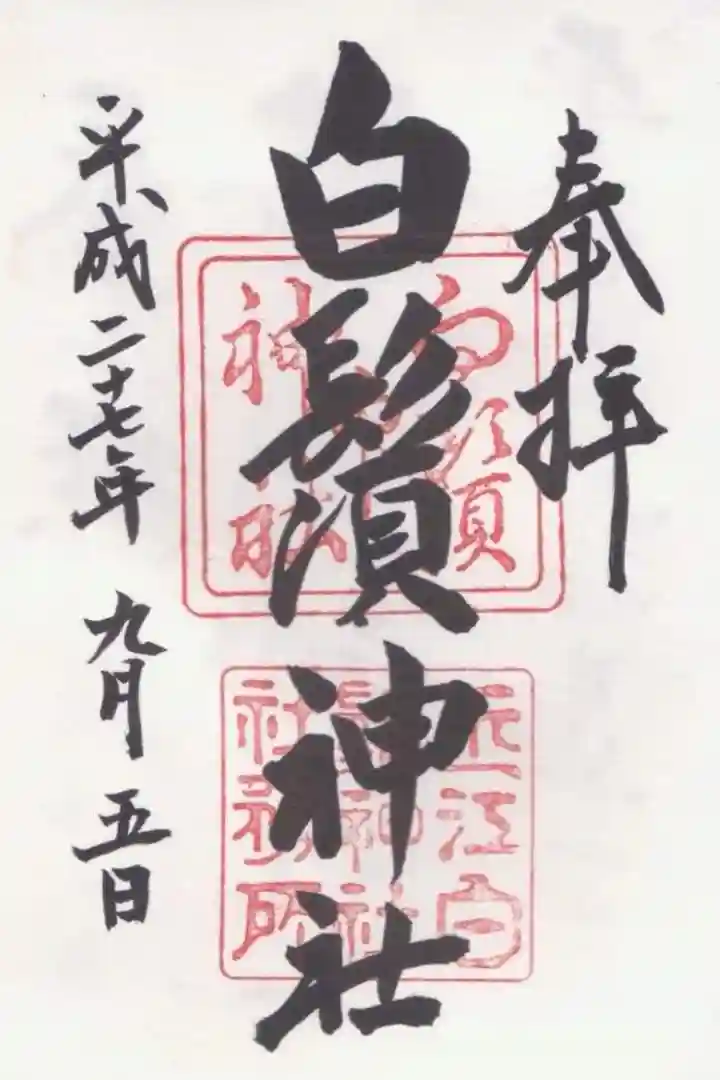 奉拝
白鬚神社
平成二十七年 九月 五日
白鬚
神社
近江白
鬚神社
社務所